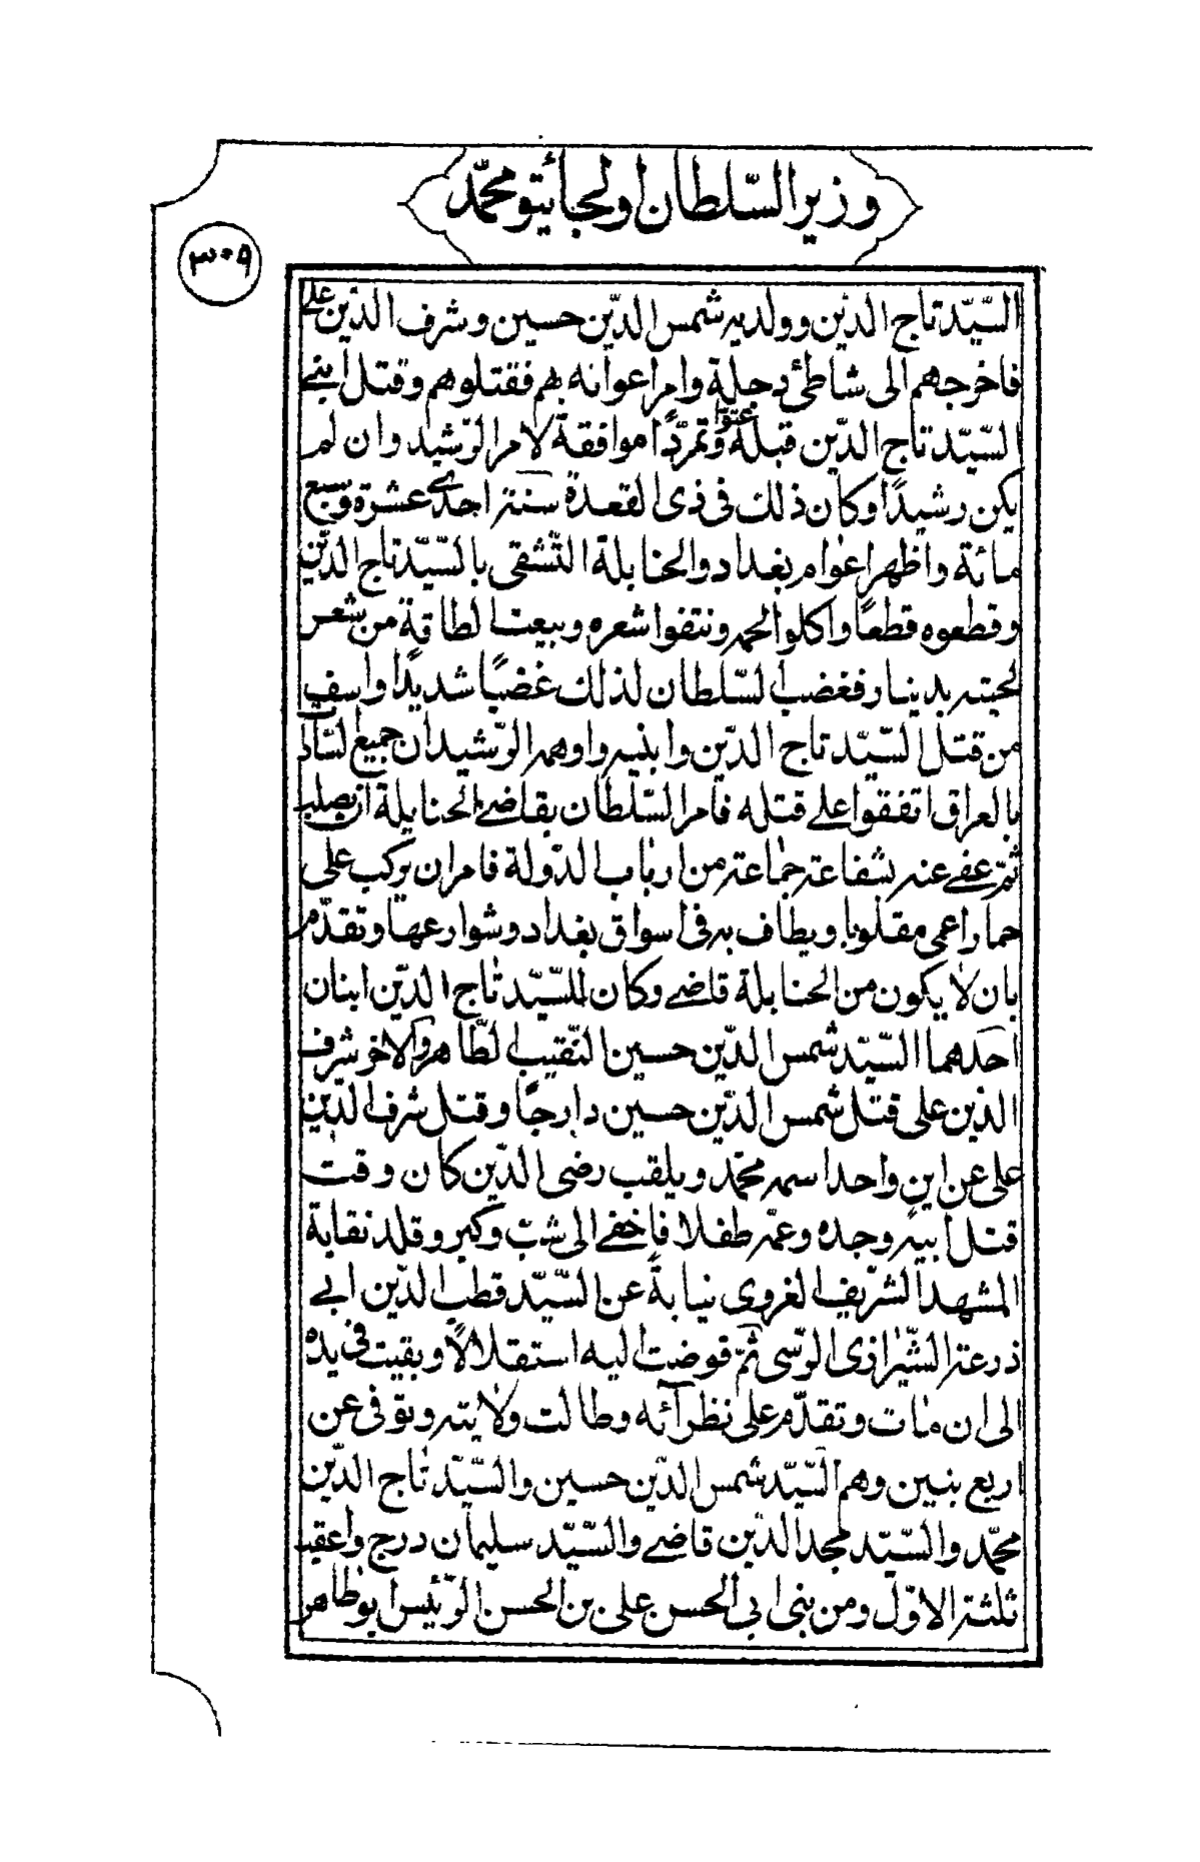 وزير السّلطان اولجائيتو محمّد
٣٠٩
السّيّد تاج الدّين وولديه شمس الدّين حسين وشرف الدّين على
فاخرجهم الى شاطئ دجلة وامر اعوانه بهم فقتلوهم وقتل ابنى
السّيّد تاج الدّين قبله عتوّا وتمرّدًا موافقة لامر الرّشيد وان لم
يكن رشيدًا وكان ذلك فى ذى القعدة سنة احدى عشرة وسبع
مائة واظهر اعوام بغداد والحنابلة التّشفى بالسّيّد تاج الدّين
وقطعوه قطعًا واكلوا لحمه ونتفوا شعره وبيعت الطاقة من شعر
لحيته بدينار فغضب السّلطان لذلك غضبًا شديدًا واسف
من قتل السّيّد تاج الدّين وابنيه واوهمه الرّشيد ان جميع السّادات
بالعراق اتفقوا على قتله فامر السّلطان بقاضى الحنابلة ان يصلب
ثمّ عفى عنه بشفاعة جماعة من ارباب الدّولة فامر ان يركب على
حمار اعمى مقلوبا ويطاف به فى اسواق بغداد وشوارعها وتقدّم
بان لا يكون من الحنابلة قاضى وكان للسّيّد تاج الدّين ابنان
احدهما السّيّد شمس الدّين حسين النّقيب الطّاهر والاخر شرف
الدّين على قتل شمس الدّين حسين دارجًا وقتل شرف الدّين
على عن ابن واحد اسمه محمّد ويلقب رضى الدّين كان وقت
قتل ابيه وجده وعمّه طفلا فاخفى الى شبّ وكبر وقلد نقابة
المشهد الشّريف الغروى نيابة عن السّيّد قطب الدّين ابى
ذرعة الشّيرازى الرّسى ثمّ فوضت اليه استقلالًا وبقيت فى يده
الى ان مات وتقدّم على نظرآئه وطالت ولايته وتوّفى عن
اربع بنين وهم السّيّد شمس الدّين حسين والسّيّد تاج الدّين
محمّد والسّيّد مجد الدّين قاضى والسّيّد سليمان درج واعقب
ثلثة الاوّل ومن بنى ابى الحسن على بن الحسن الرّئيس ابو طاهر